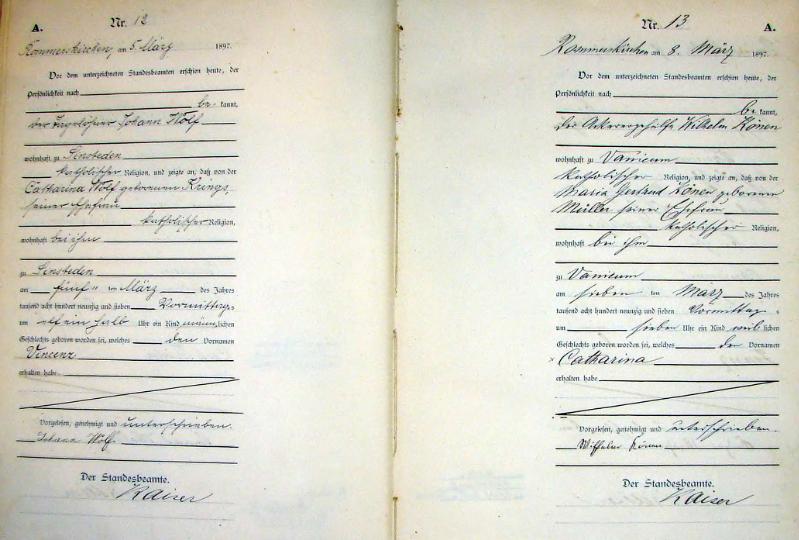 A.
Nr. 12
Rommerskirchen, am 5. März 1897.
Vor dem unterzeichneten Standesbeamten erschien heute, der
Persönlichkeit nach
be kannt,
der Tagelöhner Johann Wolf
wohnhaft zu Sinsteden
katholischer Religion, und zeigte an, daß von der
Catharina Wolf geborenen Krings
seiner Ehefrau
katholischer Religion,
wohnhaft bei ihm
zu Sinsteden
am fünf ten März des Jahres
tausend acht hundert neunzig und sieben Vormittags
um elf ein halb Uhr ein Kind männlichen
Geschlechts geboren worden sei, welches den Vornamen
Vincenz
erhalten habe.
Vorgelesen, genehmigt und unterschrieben.
Johann Wolf.
Der Standesbeamte.
Kaiser
Nr. 13
A.
Rommerskirchen am 8. März 1897.
Vor dem unterzeichneten Standesbeamten erschien heute, der
Persönlichkeit nach
be kannt,
der Ackergehülfe Wilhelm Könen
wohnhaft zu Vanicum
katholischer Religion, und zeigte an, daß von der
Maria Gertrud Könen geborenen
Müller seiner Ehefrau
katholischer Religion,
wohnhaft bei ihm
zu Vanicum
am sieben ten März des Jahres
tausend acht hundert neunzig und sieben Vormittags
um sieben Uhr ein Kind weiblichen
Geschlechts geboren worden sei, welches den Vornamen
Catharina
erhalten habe
Vorgelesen, genehmigt und unterschrieben.
Wilhelm Könen
Der Standesbeamte.
Kaiser